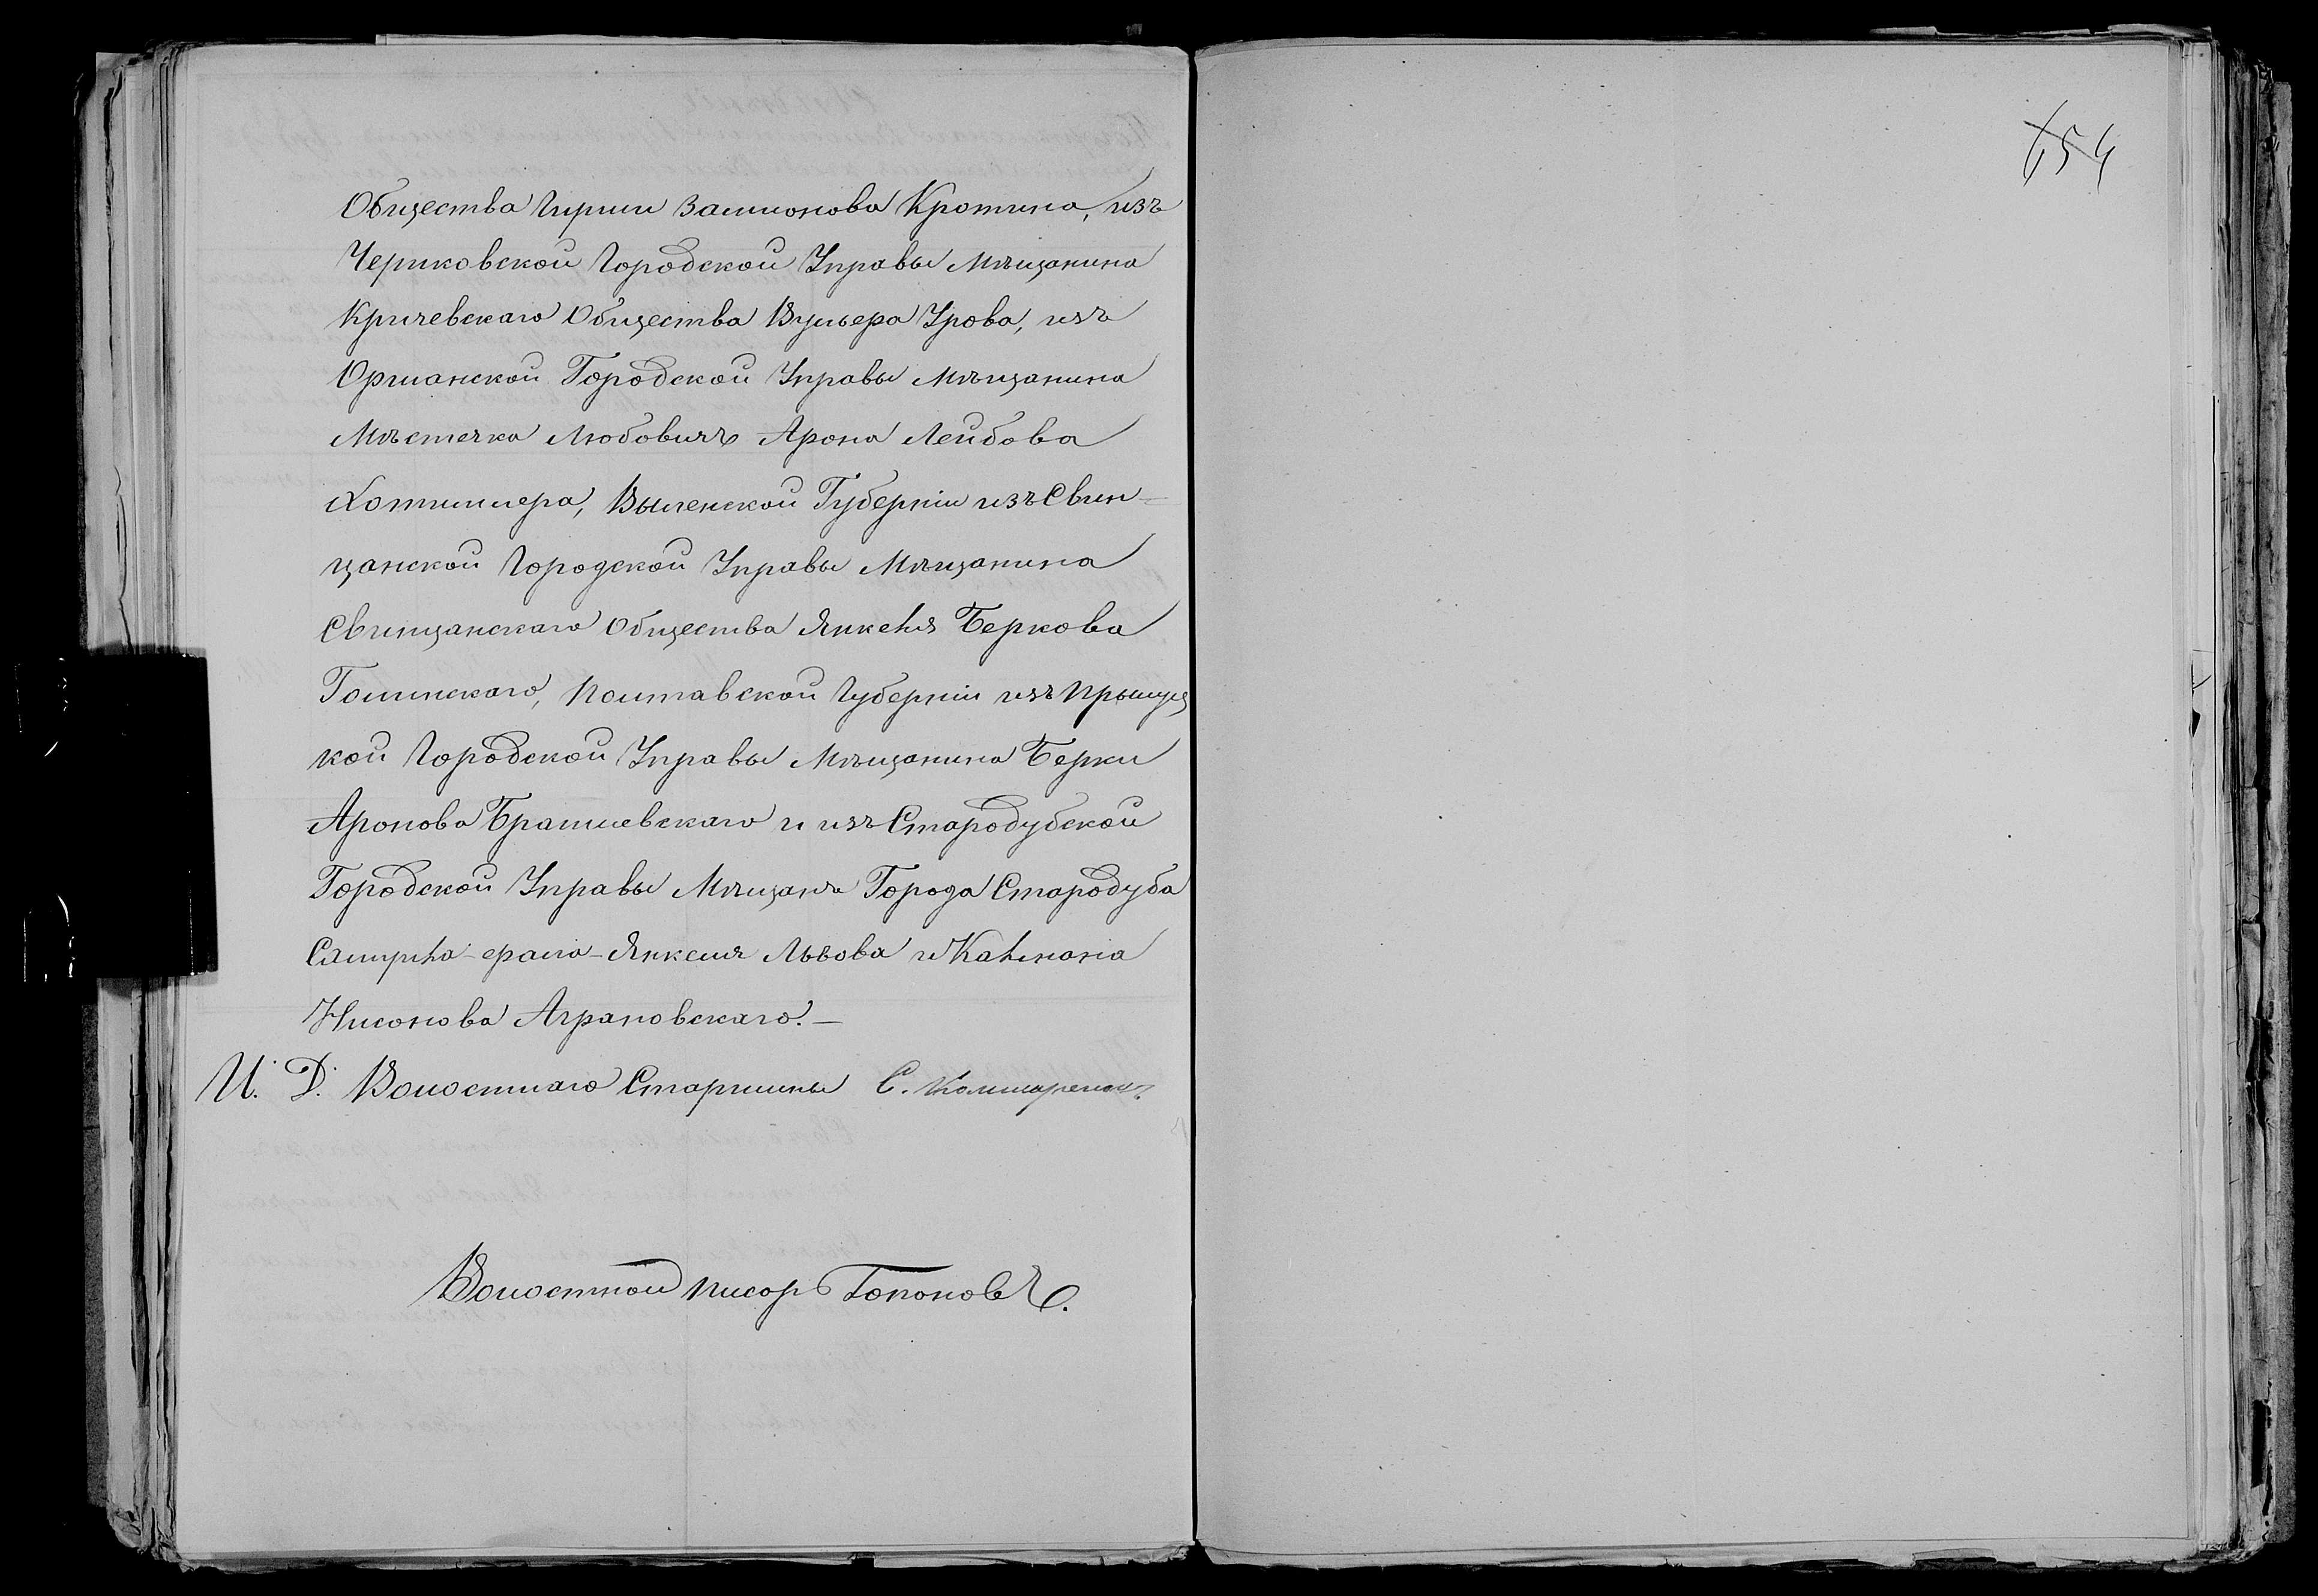 Общества Гирши Залмонова Кротина, изъ
Чериковской Городской Управы Мѣщанина
Кричевскаго Общества Вульера Урова, изъ
Оршанской Городской Управы Мѣщанина
Мѣстечка Любовичъ Арона Лейбова
Хотимлера, Виленской Губерніи изъ Свин-
цанской Городской Управы Мѣщанина
Свинцанскаго Общества Янкеля Беркова
Голинскаго, Полтавской Губерніи изъ Прылуц
кой Городской Управы Мѣщанина Берки
Аронова Браилевскаго и изъ Стародубской
Городской Управы Мѣщанъ Города Стародуба
Янкеля Львова и Калмана
Нисонова Аграновскаго. —
И. Д. Волостнаго Старшины С.
Волостной писарь Гапоновъ.
654